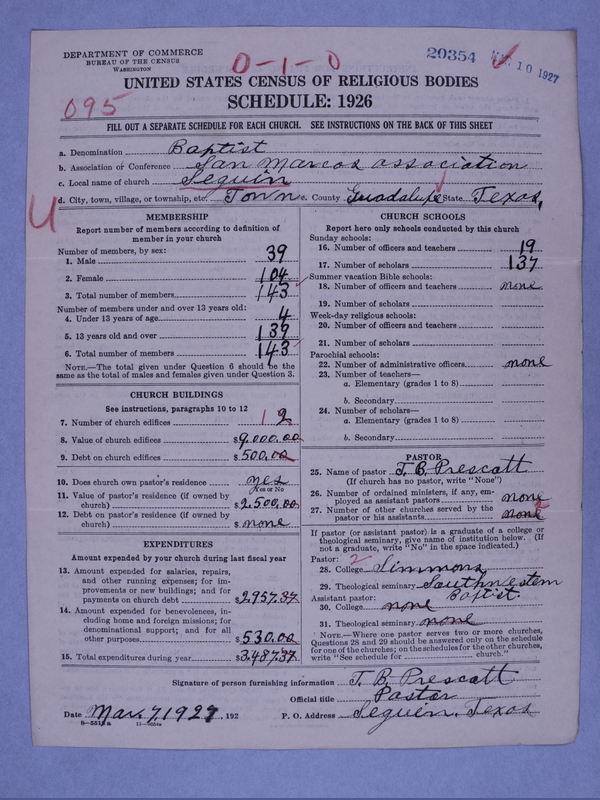 DEPARTMENT OF COMMERCE
BUREAU OF THE CENSUS
WASHINGTON
0-1-0
20354
10 1927
UNITED STATES CENSUS OF RELIGIOUS BODIES
095
SCHEDULE: 1926
FILL OUT A SEPARATE SCHEDULE FOR EACH CHURCH. SEE INSTRUCTIONS ON THE BACK OF THIS SHEET
a. Denomination Baptist
b. Association or Conference San Marcos association
c. Local name of church Seguin
d. City, town, village, or township, etc. Town e. County Guadalupe State Texas,
U
MEMBERSHIP
Report number of members according to definition of
member in your church
Number of members, by sex:
1. Male 39
2. Female 104
3. Total number of members 143
Number of members under and over 13 years old:
4. Under 13 years of age 4
5. 13 years old and over 139
6. Total number of members 143
NOTE.—The total given under Question 6 should be the
same as the total of males and females given under Question 3.
CHURCH BUILDINGS
See instructions, paragraphs 10 to 12
7. Number of church edifices 1 2
8. Value of church edifices $9,000.00
9. Debt on church edifices $500.00
10. Does church own pastor's residence yes
Yes or No
11. Value of pastor's residence (if owned by
church) $2,500.00
12. Debt on pastor's residence (if owned by
church) $none
EXPENDITURES
Amount expended by your church during last fiscal year
13. Amount expended for salaries, repairs,
and other running expenses; for im-
provements or new buildings; and for
payments on church debt $2957.37
14. Amount expended for benevolences, in-
cluding home and foreign missions; for
denominational support; and for all
other purposes $530.00
15. Total expenditures during year $3487.37
CHURCH SCHOOLS
Report here only schools conducted by this church
Sunday schools:
16. Number of officers and teachers 19
17. Number of scholars 137
Summer vacation Bible schools:
18. Number of officers and teachers none
19. Number of scholars
Week-day religious schools:
20. Number of officers and teachers
21. Number of scholars
Parochial schools:
22. Number of administrative officers none
23. Number of teachers—
a. Elementary (grades 1 to 8)
b. Secondary
24. Number of scholars—
a. Elementary (grades 1 to 8)
b. Secondary
PASTOR
25. Name of pastor T. B. Prescott
(If church has no pastor, write "None")
26. Number of ordained ministers, if any, em-
ployed as assistant pastors none
27. Number of other churches served by the
pastor or his assistants none 2
If pastor (or assistant pastor) is a graduate of a college or
theological seminary, give name of institution below. (If
not a graduate, write "No" in the space indicated.)
Pastor: 2
28. College Simmons,
29. Theological seminary Southwestern
Assistant pastor: Baptist.
30. College none
31. Theological seminary none
NOTE.—Where one pastor serves two or more churches,
Questions 28 and 29 should be answered only on the schedule
for one of the churches; on the schedules for the other churches,
write "See schedule for church."
Signature of person furnishing information T. B. Prescott
Official title Pastor
Date Mar. 7, 1927, 192 P. O. Address Seguin, Texas